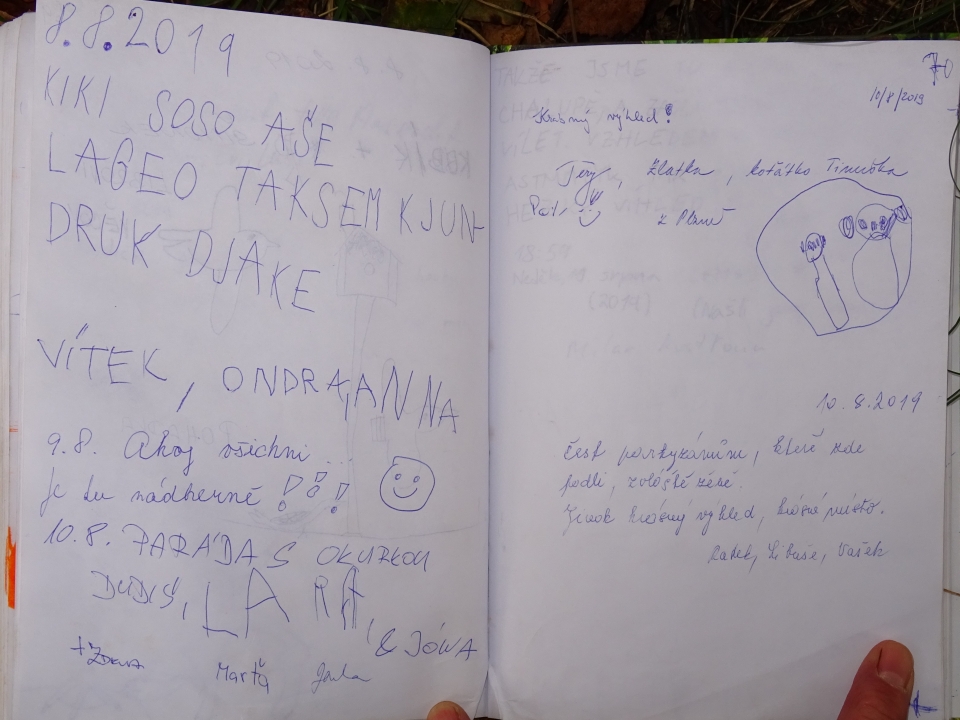 8.8.2019
KIKI SOSO AŠE
LAGEO TAKSEM KJUN-
DRUK DJAKE
VÍTEK, ONDRA, ANNA
9.8. Ahoj všichni ...
je tu nádherně !!!
10.8. PARÁDA S OKURKOU
DUDIŠ, LARA,
& JÓWA
+ZDENA Martã
70
10/8/2019
Krásný výhled!
Zlatka, koťátko Timuška
Petr z Plané
10.8.2019
Čest partyzánům, kteří zde
padli,
Jinak krásný výhled, krásné místo.
Radek, Libuše, Vašek